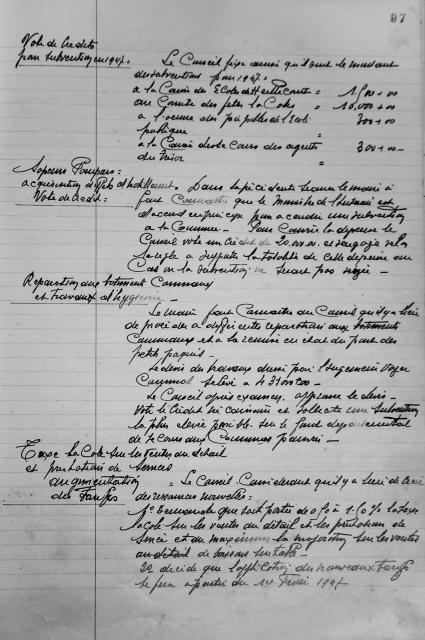 97
Vote de Crédits
pour subvention en 1947.
Le Conseil fixe ainsi qu'il suit le montant
des subventions pour 1947 :
a la Caisse des Ecoles de =
au Comité des fêtes = 10.000 + 00
a l'oeuvre des pupilles de l'Ecole
publique = 300 + 00
a la Caisse de secours des agents
du Trésor = 300 + 00
Sapeurs Pompiers :
acquisition d'effets d'habillement.
Vote de Crédit :
Dans sa précédente séance le maire a
fait Connaitre que le Ministre de l'Intérieur est
d'accord en principe pour accorder une subvention
a la Commune. Pour Couvrir la dépense le
Conseil vote un Crédit de 20.000 et s'engage
a la totalité de cette dépense au
Cas où la subvention ne serait pas
Réparation aux batiments Communaux
et travaux d'hygiène
Le maire fait Connaitre au Conseil qu'il y a lieu
de procéder a différentes réparations aux batiments
Communaux et a la remise en état du pont des
petits
Le devis des travaux dressé par l'Ingénieur Voyer
Cantonal s'élève a
Le Conseil après examen, approuve le devis
Vote le Crédit nécessaire et sollicite une subvention
la plus élevée possible sur le fond départemental
de secours aux Communes pauvres
Taxe locale sur les ventes au détail
et prestations de services
augmentation
des Tarifs
Le Conseil Considérant qu'il y a lieu de créer
des ressources nouvelles :
1° Demande que soit portée de 0 % à 1.50 % la taxe
locale sur les ventes au détail et les prestations de
service et au maximum la majoration sur les ventes
au détail de boissons
2° décide que l'application des nouveaux Tarifs
se fera a partir du 1er Février 1947